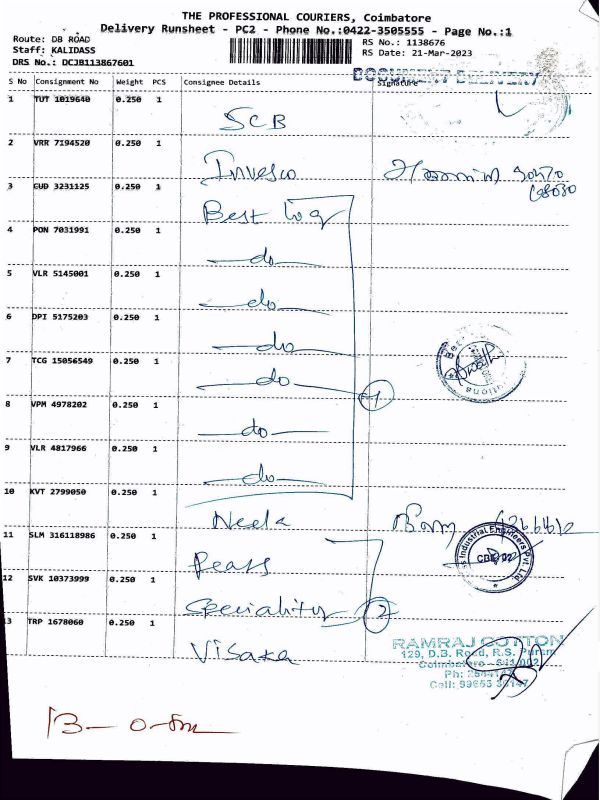 THE PROFESSIONAL COURIERS, Coimbatore
Delivery Runsheet - PC2 - Phone No.:0422-3505555 - Page No.:1
Route: DB ROAD
RS No.: 1138676
Staff: KALIDASS
RS Date: 21-Mar-2023
DRS No.: DCJB113867601
DOCUMENT DELIVERY
S No Consignment No Weight PCS Consignee Details Signature
1 TUT 1019640 0.250 1 SCB
2 VRR 7194520 0.250 1 Invesco
3 CUD 3231125 0.250 1 Best log
4 PON 7031991 0.250 1 do
5 VLR 5145001 0.250 1 do
6 DPI 5175203 0.250 1 do
7 TCG 15056549 0.250 1 do
8 VPM 4978202 0.250 1 do
9 VLR 4817966 0.250 1 do
10 KVT 2799050 0.250 1 Neela
11 SLM 316118986 0.250 1 Pears
12 SVK 10373999 0.250 1 Speciality 2
13 TRP 1678060 0.250 1 Visaka
Industrial Engineers Pvt. Ltd.
RAMRAJ COTTON
129, D.B. Road, R.S. Puram
Coimbatore - 641 002
Ph:
Cell:
13 -